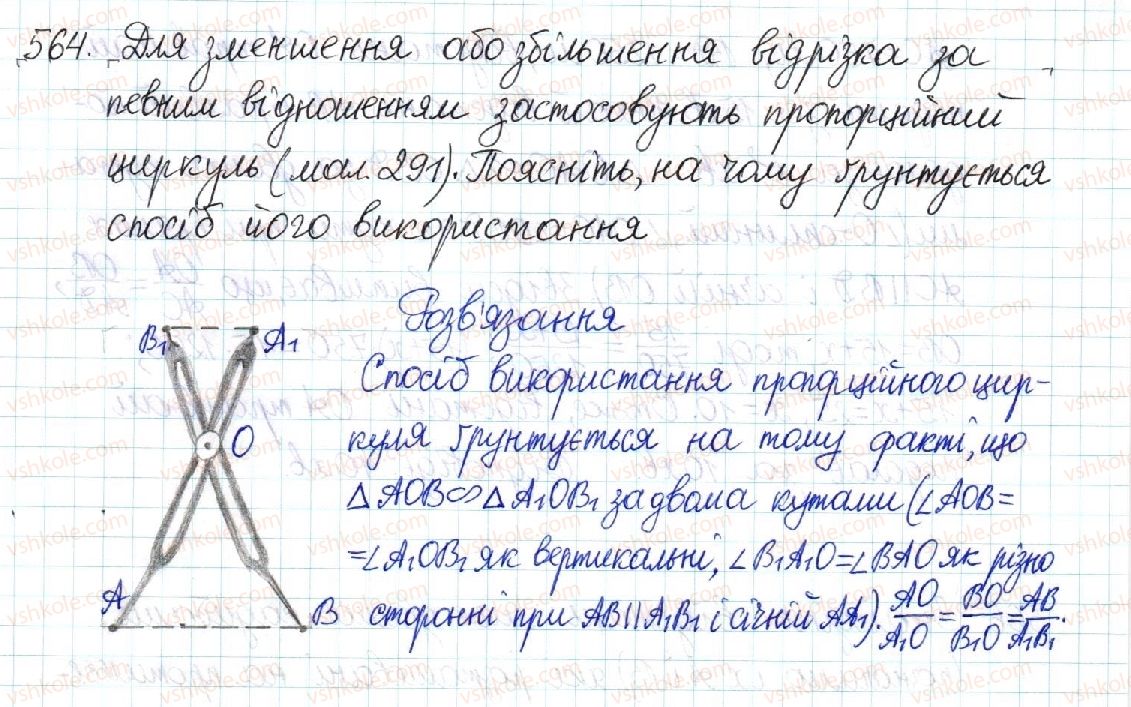 564. Для зменшення або збільшення відрізка за
певним відношенням застосовують пропорційний
циркуль (мал. 291). Поясніть, на чому ґрунтується
спосіб його використання
Розв'язання
B₁ A₁
O
A B
Спосіб використання пропорційного цир-
куля ґрунтується на тому факті, що
△AOB∽△A₁OB₁ за двома кутами (∠AOB=
=∠A₁OB₁ як вертикальні, ∠B₁A₁O=∠BAO як різно
сторонні при AB||A₁B₁ і січній AA₁). AO/A₁O = BO/B₁O = AB/A₁B₁.